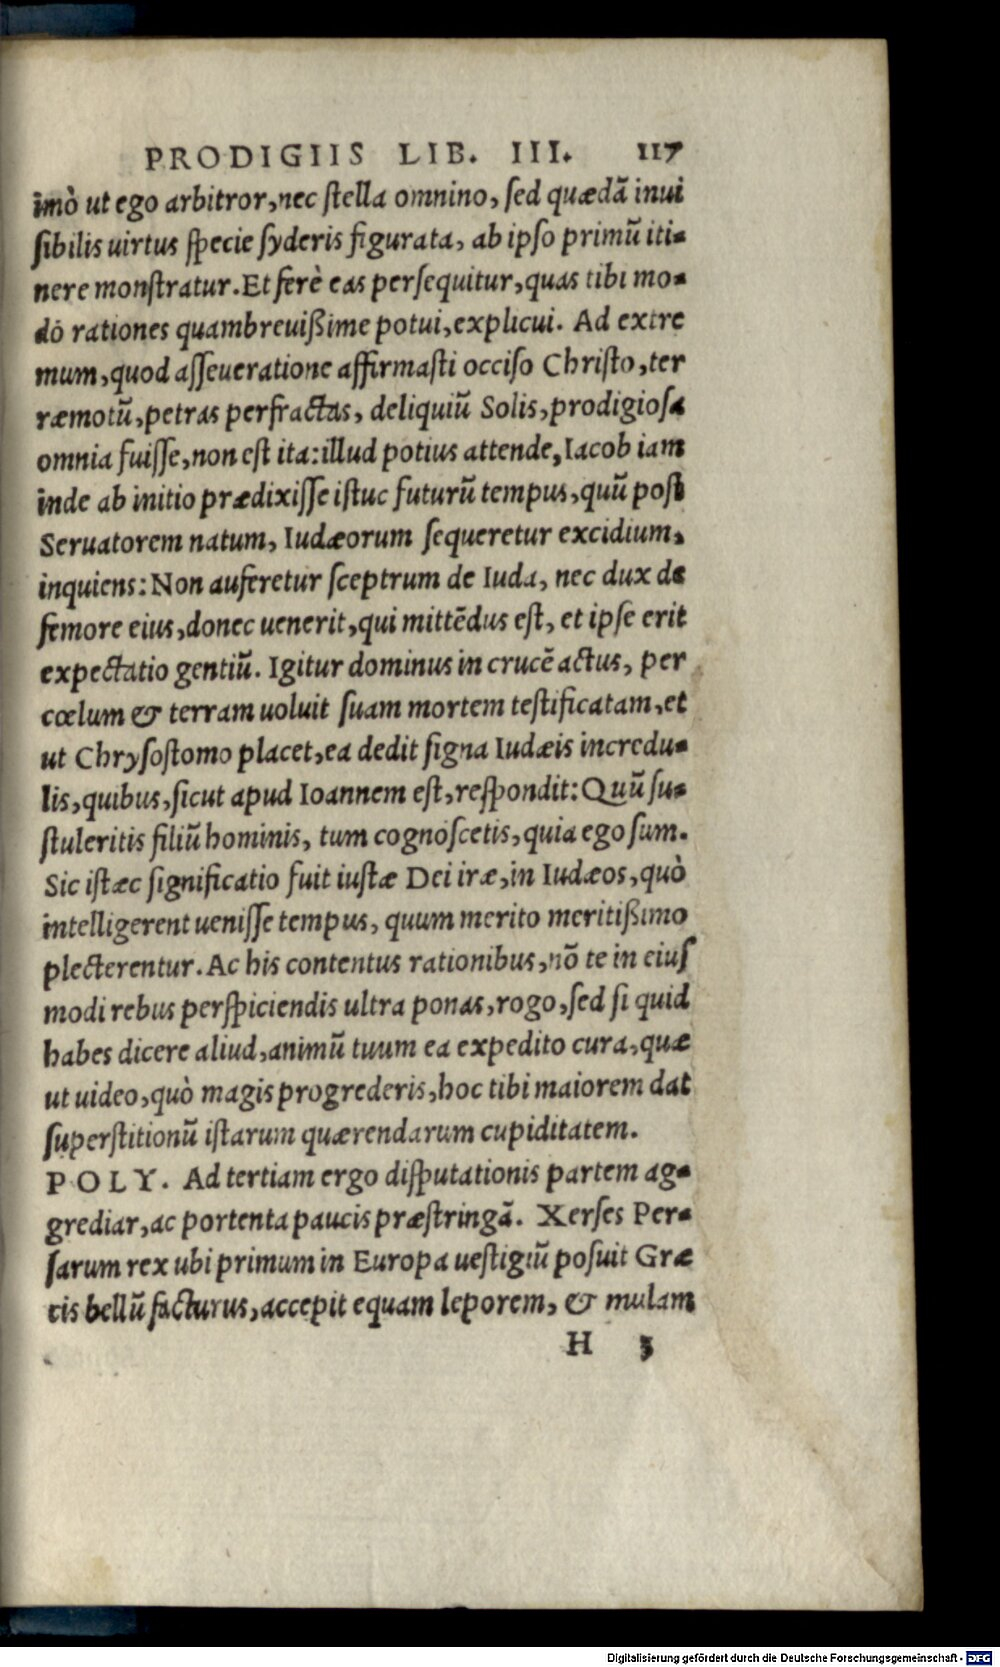 PRODIGIIS LIB. III. 117
imò ut ego arbitror, nec stella omnino, sed quædã inui
sibilis uirtus specie syderis figurata, ab ipso primũ iti-
nere monstratur. Et ferè eas persequitur, quas tibi mo-
dò rationes quambreuißime potui, explicui. Ad extre
mum, quod asseueratione affirmasti occiso Christo, ter
ræmotũ, petras perfractas, deliquiũ Solis, prodigiosa
omnia fuisse, non est ita: illud potius attende, Iacob iam
inde ab initio prædixisse istuc futurũ tempus, quũ post
Seruatorem natum, Iudæorum sequeretur excidium,
inquiens: Non auferetur sceptrum de Iuda, nec dux de
femore eius, donec uenerit, qui mittẽdus est, et ipse erit
expectatio gentiũ. Igitur dominus in crucẽ actus, per
cœlum & terram uoluit suam mortem testificatam, et
ut Chrysostomo placet, ea dedit signa Iudæis incredu-
lis, quibus, sicut apud Ioannem est, respondit: Quũ su-
stuleritis filiũ hominis, tum cognoscetis, quia ego sum.
Sic istæc significatio fuit iustæ Dei iræ, in Iudæos, quò
intelligerent uenisse tempus, quum merito meritißimo
plecterentur. Ac his contentus rationibus, nõ te in eius
modi rebus perspiciendis ultra ponas, rogo, sed si quid
habes dicere aliud, animũ tuum ea expedito cura, quæ
ut uideo, quò magis progrederis, hoc tibi maiorem dat
superstitionũ istarum quærendarum cupiditatem.
POLY. Ad tertiam ergo disputationis partem ag-
grediar, ac portenta paucis præstringã. Xerses Per-
sarum rex ubi primum in Europa uestigiũ posuit Græ
cis bellũ facturus, accepit equam leporem, & mulam
H 3
Digitalisierung gefördert durch die Deutsche Forschungsgemeinschaft - DFG